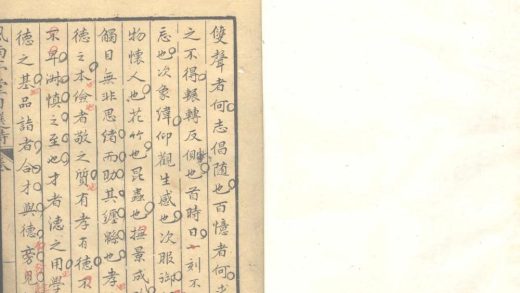 雙聲者何志倡随也百憶者何
之不得輾轉反側也首時日一刻不
忘也次象緯仰觀生感也次服御
物懷人也花竹也昆蟲也撫景成
觸目無非思緒而助其纏緜也孝
德之本儉者敬之質有孝有德不
不早淑慎之至也才者德之用學
德之基品詣者合才與德旁見